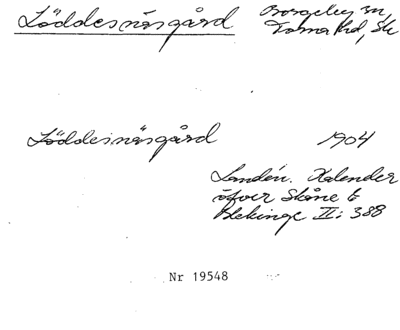 Löddesnäsgård Borgeby sn,
Torna hd, Sk
Löddesnäsgård 1904
Landén. Kalender
öfver Skåne &
Blekinge II: 388
Nr 19548